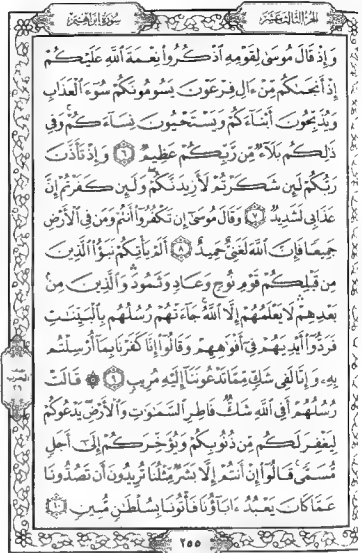 سورة إبراهيم
الجزء الثالث عشر
وَإِذْ قَالَ مُوسَىٰ لِقَوْمِهِ ٱذْكُرُوا۟ نِعْمَةَ ٱللَّهِ عَلَيْكُمْ
إِذْ أَنجَىٰكُم مِّنْ ءَالِ فِرْعَوْنَ يَسُومُونَكُمْ سُوٓءَ ٱلْعَذَابِ
وَيُذَبِّحُونَ أَبْنَآءَكُمْ وَيَسْتَحْيُونَ نِسَآءَكُمْ ۚ وَفِى
ذَٰلِكُم بَلَآءٌ مِّن رَّبِّكُمْ عَظِيمٌ ٦ وَإِذْ تَأَذَّنَ
رَبُّكُمْ لَئِن شَكَرْتُمْ لَأَزِيدَنَّكُمْ ۖ وَلَئِن كَفَرْتُمْ إِنَّ
عَذَابِى لَشَدِيدٌ ٧ وَقَالَ مُوسَىٰٓ إِن تَكْفُرُوٓا۟ أَنتُمْ وَمَن فِى ٱلْأَرْضِ
جَمِيعًا فَإِنَّ ٱللَّهَ لَغَنِىٌّ حَمِيدٌ ٨ أَلَمْ يَأْتِكُمْ نَبَؤُا۟ ٱلَّذِينَ
مِن قَبْلِكُمْ قَوْمِ نُوحٍ وَعَادٍ وَثَمُودَ ۛ وَٱلَّذِينَ مِنۢ
بَعْدِهِمْ ۛ لَا يَعْلَمُهُمْ إِلَّا ٱللَّهُ ۚ جَآءَتْهُمْ رُسُلُهُم بِٱلْبَيِّنَٰتِ
فَرَدُّوٓا۟ أَيْدِيَهُمْ فِىٓ أَفْوَٰهِهِمْ وَقَالُوٓا۟ إِنَّا كَفَرْنَا بِمَآ أُرْسِلْتُم
بِهِۦ وَإِنَّا لَفِى شَكٍّ مِّمَّا تَدْعُونَنَآ إِلَيْهِ مُرِيبٍ ٩ ۞ قَالَتْ
رُسُلُهُمْ أَفِى ٱللَّهِ شَكٌّ فَاطِرِ ٱلسَّمَٰوَٰتِ وَٱلْأَرْضِ ۖ يَدْعُوكُمْ
لِيَغْفِرَ لَكُم مِّن ذُنُوبِكُمْ وَيُؤَخِّرَكُمْ إِلَىٰٓ أَجَلٍ
مُّسَمًّى ۚ قَالُوٓا۟ إِنْ أَنتُمْ إِلَّا بَشَرٌ مِّثْلُنَا تُرِيدُونَ أَن تَصُدُّونَا
عَمَّا كَانَ يَعْبُدُ ءَابَآؤُنَا فَأْتُونَا بِسُلْطَٰنٍ مُّبِينٍ ١٠
٢٥٥